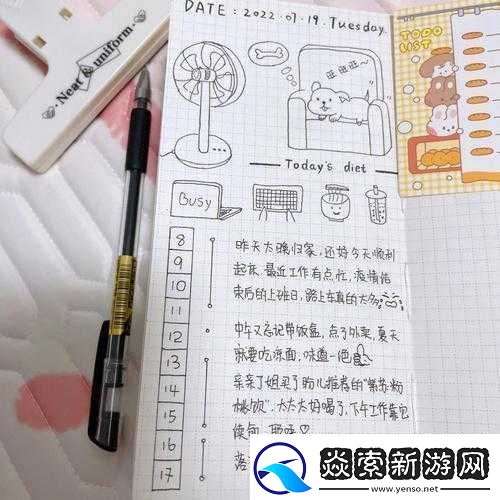 Neat & uniform
DATE : 2022.07.19. Tuesday.
TODO
LIST
旺旺~
Today's diet
Busy
8
9
10
11
12
13
14
15
16
17
昨天太晚归家,还好今天顺利
起床,最近工作有点忙,疫情结
束后的上班日,路上车真的太多
中午又忘记带饭盒,点了外卖,夏天
就要吃凉面,味道一绝
亲亲丁姐买了 的"紫苏粉
桃饮",太太太好喝了,下午工作靠它
续命,耶呼♡
落
焱索新游网
www.yenso.net